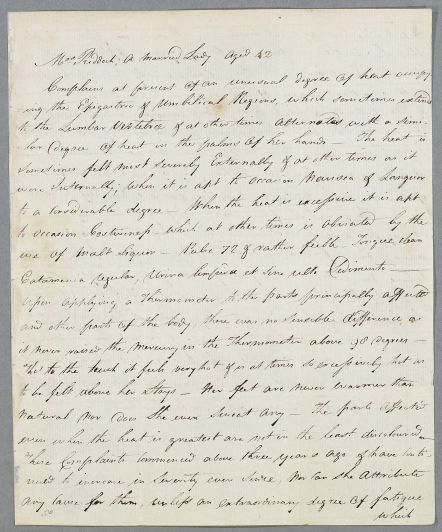 Mrs Riddoch, A married Lady aged 42
Complains at present of an unusual degree of heat occupy
ing the Epigastric & Umbilical Regions, which sometimes extends
to the Lumbar Vertebræ & at other times alternates with a simi
lar degree of heat in the palms of her hands — The heat is
sometimes felt most severely Externally & at other times as it
were Internally; when it is apt to occasion Nausea & Languor
to a considerable degree — When the heat is excessive it is apt
to occasion Costiveness which at other times is obviated by the
use of Malt liquor — Pulse 72 & rather feeble. Tongue clean
Catamenia Regular, Urina limpida et sine ullo Sedimento —
Upon applying a Thermometer to the parts principally affected
and other parts of the body, there was no sensible difference, as
it never raised the Mercury in the Thermometer above 98 degrees —
Tho' to the touch it feels very hot & is at times so excessively hot as
to be felt above her stays — Her feet are never warmer than
natural nor does She ever Sweat any — The parts affected
even when the heat is greatest are not in the least discoloured —
These Complaints commenced above three years ago & have conti
nued to increase in Severity ever since, Nor can she Attribute
any cause for them, unless an extraordinary degree of fatigue
which